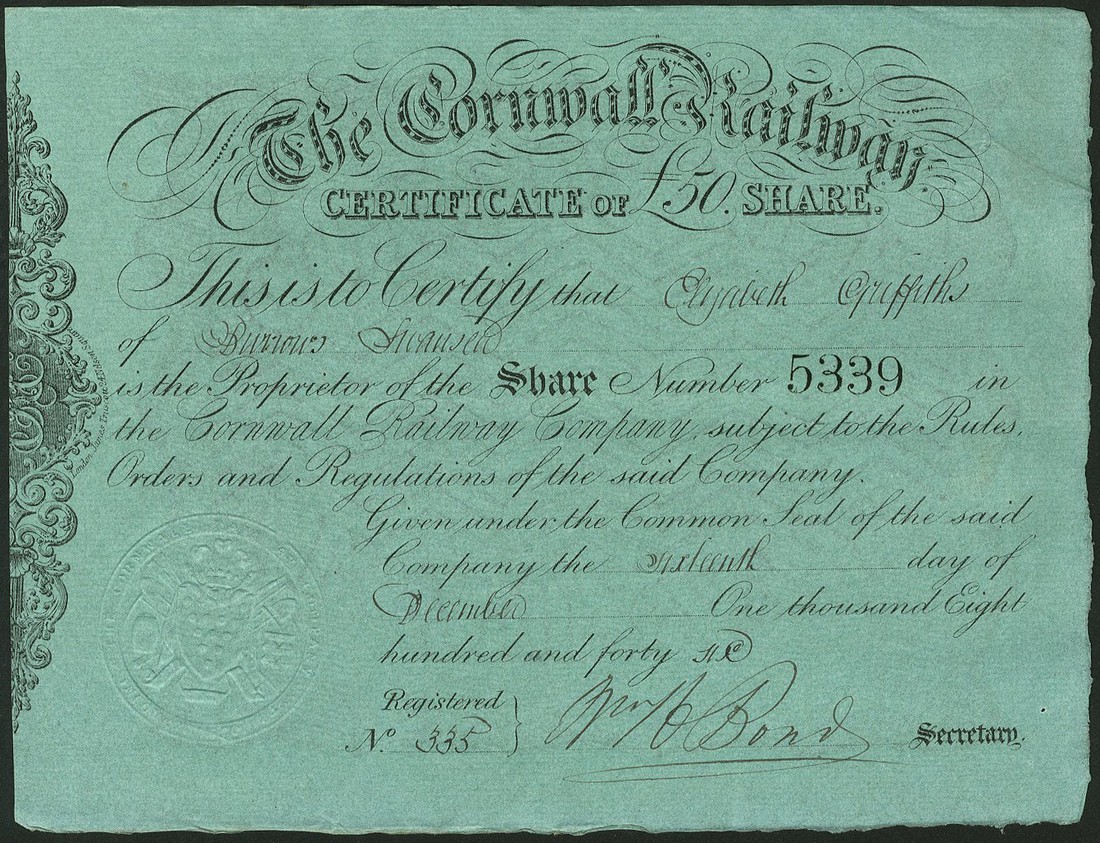 The Cornwall Railway.
CERTIFICATE OF £50. SHARE.
This is to Certify that Elizabeth Griffiths
of Burrows Swansea
is the Proprietor of the Share Number 5339 in
the Cornwall Railway Company, subject to the Rules,
Orders and Regulations of the said Company.
Given under the Common Seal of the said
Company the sixteenth day of
December One thousand Eight
hundred and forty six
Registered
No. 335
Wm H Bond Secretary.